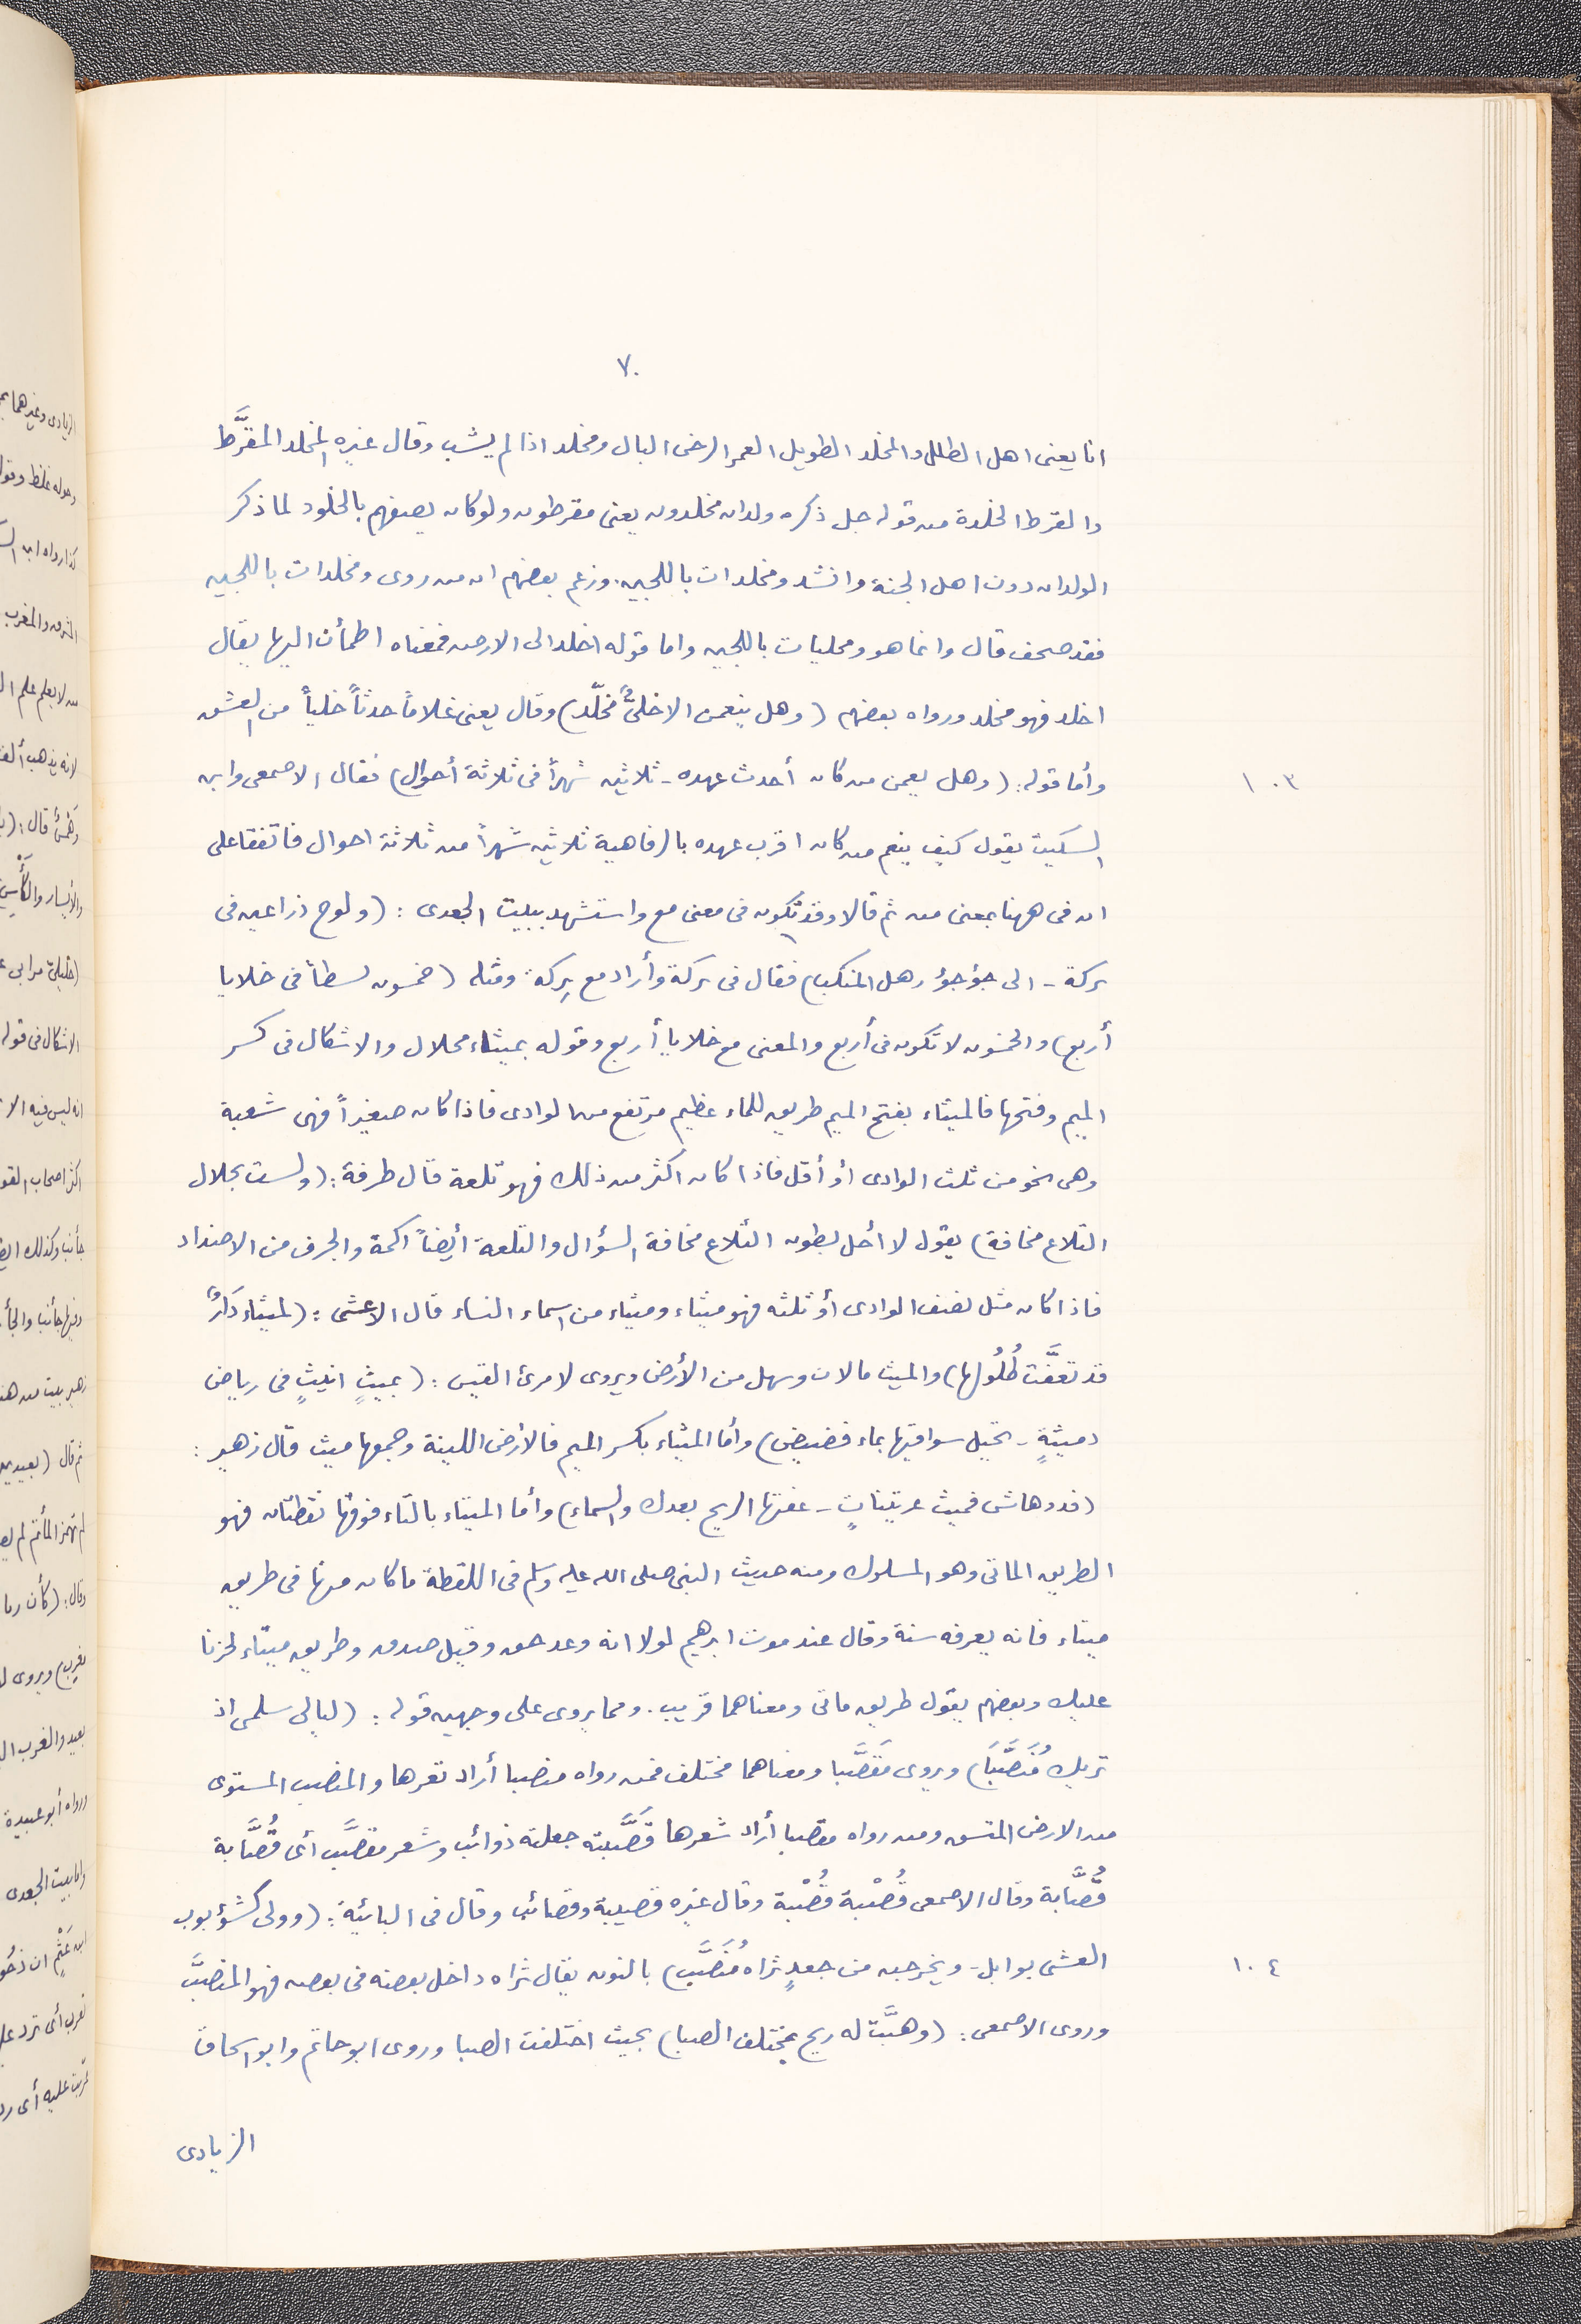 ٧٠
انا يعنى اهل الطلل والمخلد الطويل العمر الرخى البال ومخلد اذا لم يشب وقال غيره المخلد المقرَّط
والقرط الخلدة من قوله جل ذكره ولدان مخلدون يعنى مقرطون ولو كان يصفهم بالخلود لما ذكر
الولدان دون اهل الجنة وانشد ومخلدات باللجين. وزعم بعضهم ان من روى ومخلدات باللجين
فقد صحف قال وانما هو ومحليات باللجين واما قوله اخلد الى الارض فمعناه اطمأن اليها يقال
اخلد فهو مخلد ورواه بعضهم (وهل ينعمن الا خلىٌّ مخلّد) وقال يعنى غلاماً حدثاً خلياً من العشق
١٠٣ وأما قوله: (وهل يعمن من كان أحدث عهده - ثلاثين شهراً فى ثلاثة أحوال) فقال الاصمعى وابن
السكيت يقول كيف ينعم من كان اقرب عهده بالرفاهية ثلاثين شهراً من ثلاثة احوال فاتفقا على
ان فى ههنا بمعنى من ثم قالا وقد تكون فى معنى مع واستشهد ببيت الجعدى: (ولوح ذراعين فى
بركة - الى جؤجؤ رهل المنكب) فقال فى بركة وأراد مع بركة ومثله (خمسون بسطاً فى خلايا
أربع) والخمسون لا تكون فى أربع والمعنى مع خلايا أربع وقوله بميثاء محلال والاشكال فى كسر
الميم وفتحها فالميثاء بفتح الميم طريق للماء عظيم مرتفع من الوادى فاذا كان صغيراً فهى شعبة
وهى نحو من ثلث الوادى او أقل فاذا كان اكثر من ذلك فهو تلعة قال طرفة: (ولست بحلال
التلاع مخافة) يقول لا أحل بطون التلاع مخافة السؤال والتلعة أيضاً اكمة والجرف من الاضداد
فاذا كان مثل نصف الوادى أو ثلثه فهو ميثاء وميثاء من اسماء النساء قال الاعشى: (لميثاء دَارٌ
قد تعفَّت طُلُولها) والميث ما لان وسهل من الأرض ويروى لامرئ القيس: (بميثٍ انيثٍ فى رياض
دميثةٍ - تحيل سواقيها بماء فضيض) وأما الميثاء بكسر الميم فالأرض اللينة وجمعها ميث قال زهير:
(فذوهاش فميث عريتناتٍ - عفتها الريح بعدك والسماء) وأما الميتاء بالتاء فوقها نقطتان فهو
الطريق الماتى وهو المسلوك ومنه حديث النبى صلى الله عليه وسلم فى اللقطة ما كان منها فى طريق
ميتاء فانه يعرفه سنة وقال عند موت ابرهيم لولا انه وعد حق وقيل صدق وطريق ميتاء لحزنا
عليك وبعضهم يقول طريق ماتى ومعناهما قريب. ومما يروى على وجهين قوله: (ليالى سلمى اذ
تريك مُنَصَّبَا) ويروى مَقَصَّبا ومعناهما مختلف فمن رواه منصبا أراد ثغرها والمنصب المستوى
من الارض المتسق ومن رواه مقصبا أراد شعرها قَصَّبته جعلته ذوائب وشعر مقصَّب أى قُصَّابة
قُصَّابة وقال الاصمعى قُصْبة قُصْبة وقال غيره قصيبة وقصائب وقال فى البائية: (وولى كشؤبوب
١٠٤ العشى بوابل - ويخرجن من جعدٍ ثراه مُنَصَّبِ) بالنون يقال ثراه داخل بعضه فى بعض فهو المنصبَّ
وروى الاصمعى: (وهبَّت له ريح بمختلف الصبا) بحيث اختلفت الصبا وروى ابو حاتم وابو اسحاق
الزيادى